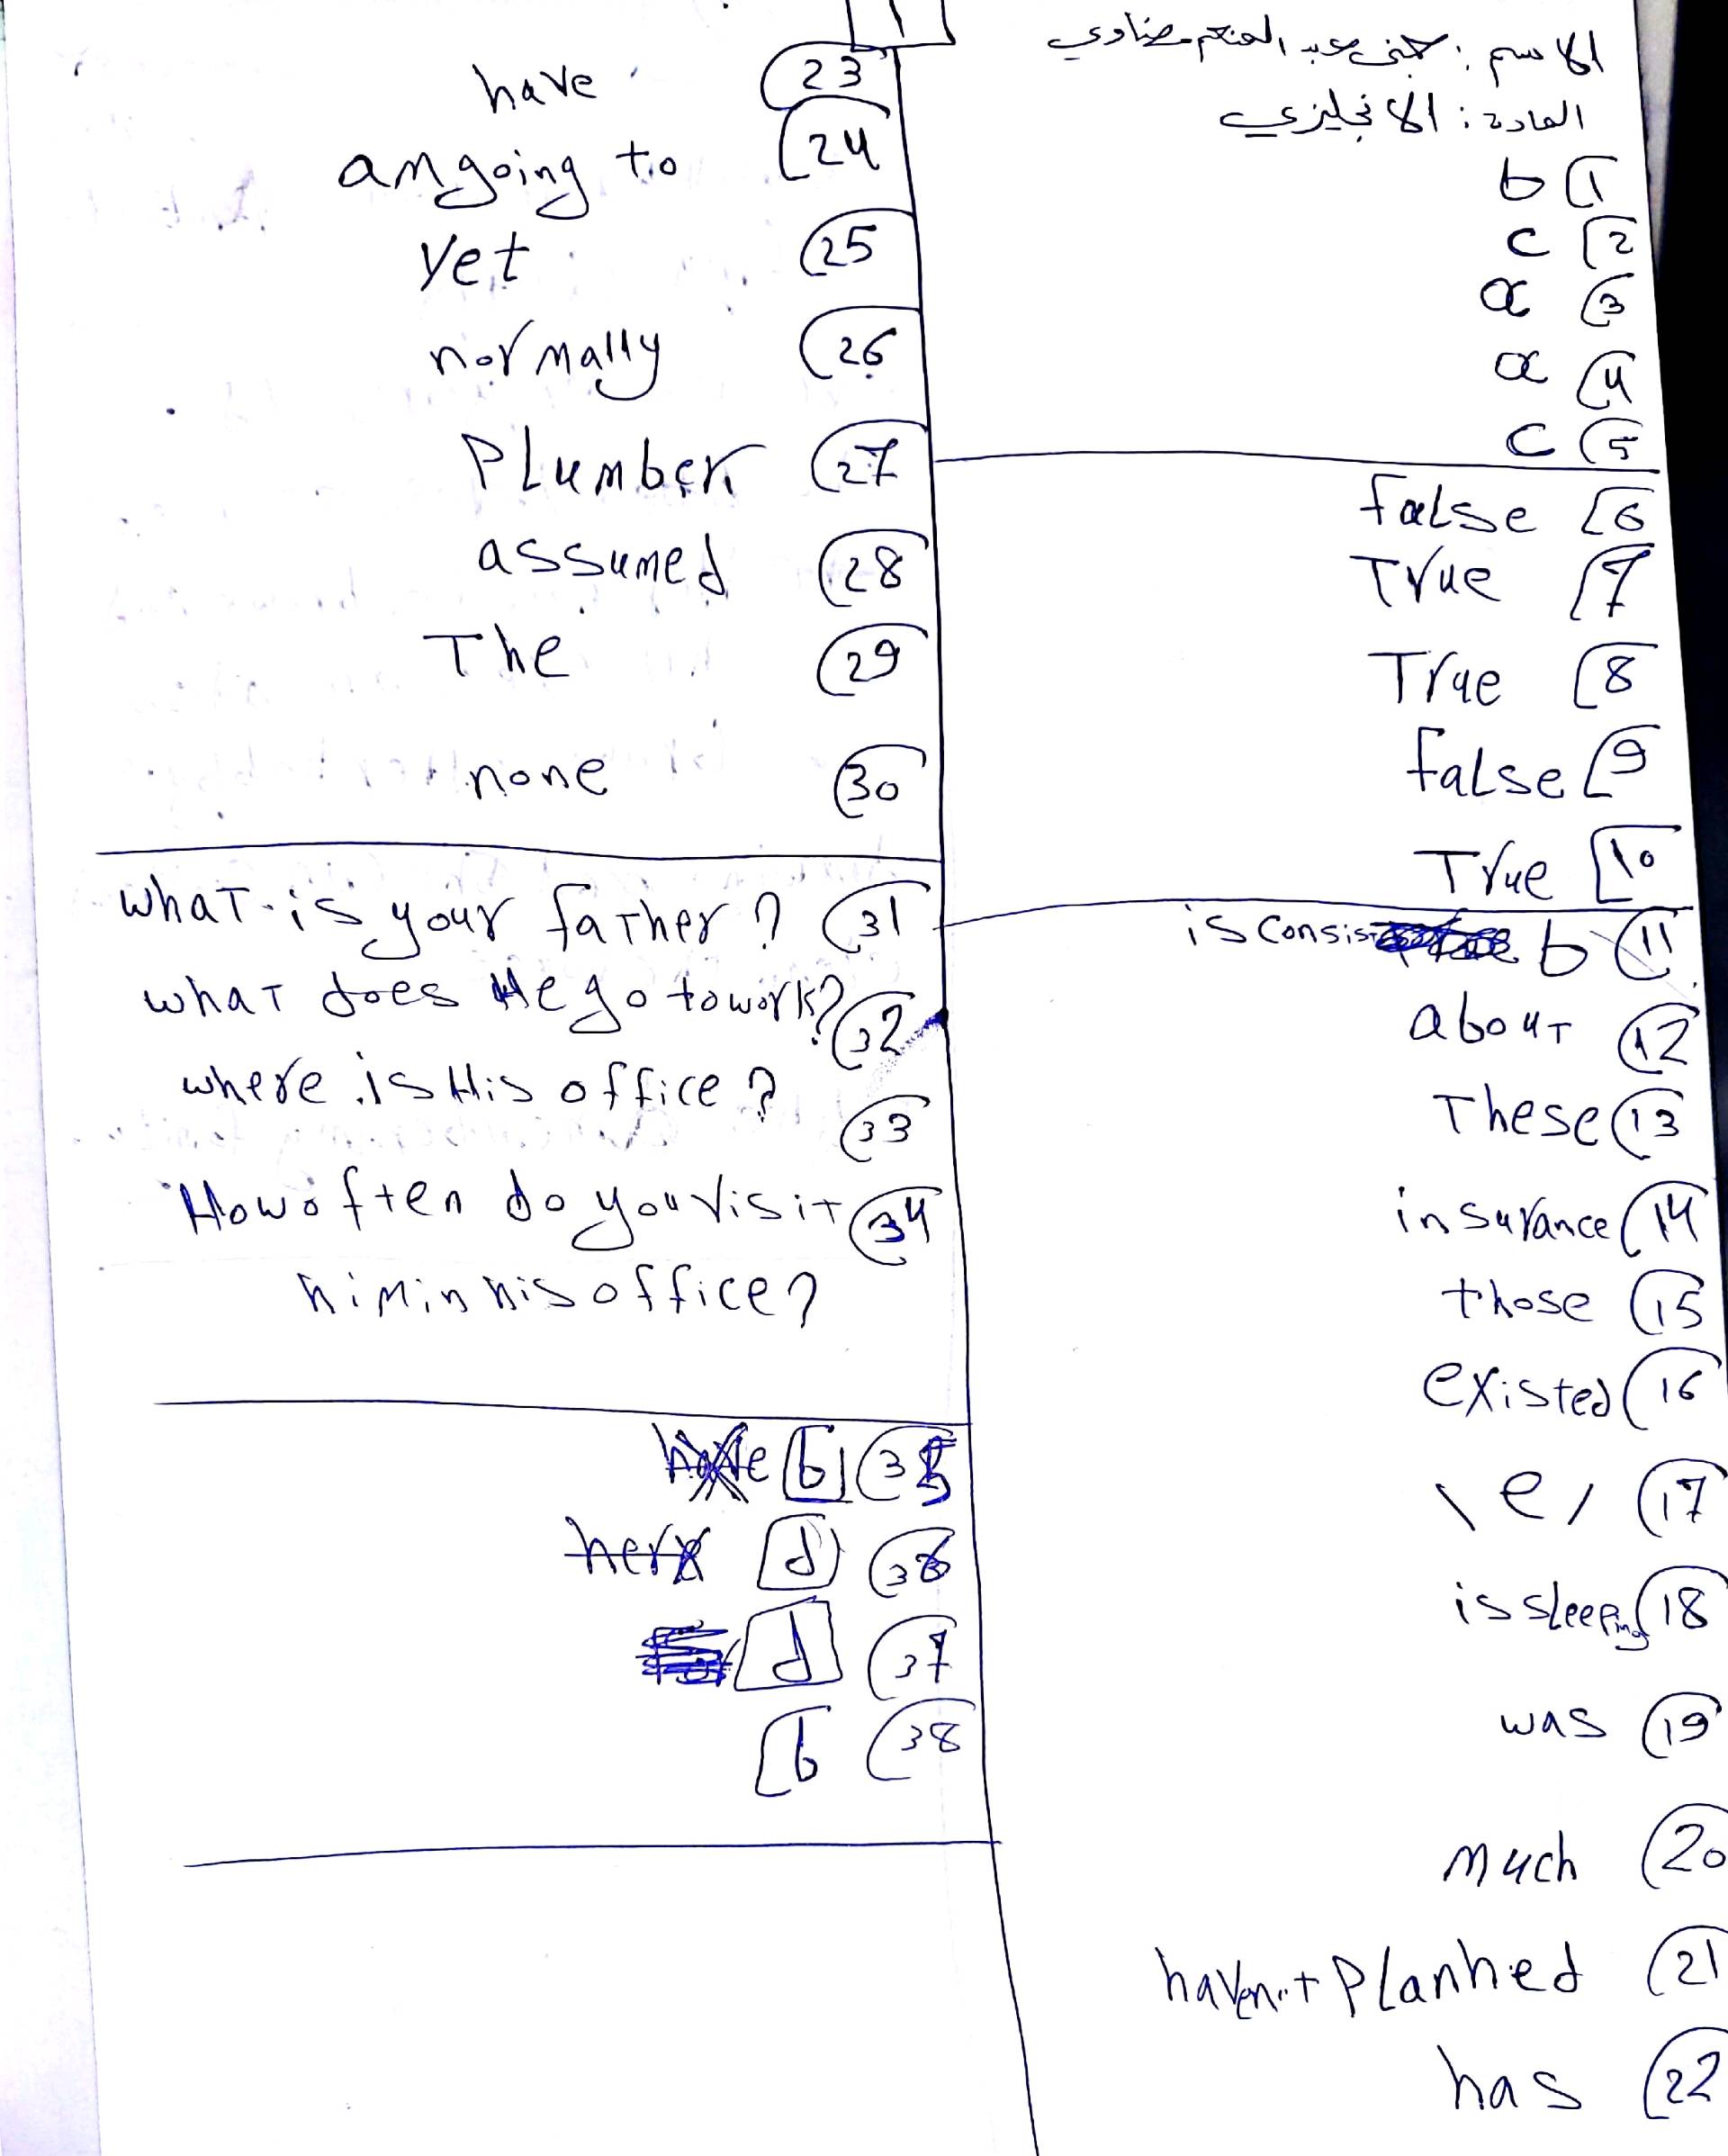 الاسم : جنى عبد المنعم مضاوي
المادة : الانجليزي
1) b
2) c
3) a
4) a
5) c
6) false
7) True
8) True
9) false
10) True
11) b is consis
12) about
13) These
14) insurance
15) those
16) existed
17) \e/
18) is sleeping
19) was
20) much
21) haven't Planned
22) has
1
23) have
24) am going to
25) yet
26) normally
27) Plumber
28) assumed
29) The
30) none
31) what is your father?
32) what does He go to work?
33) where is His office?
34) How often do you visit
him in his office?
35) b
36) d
37) d
38) b